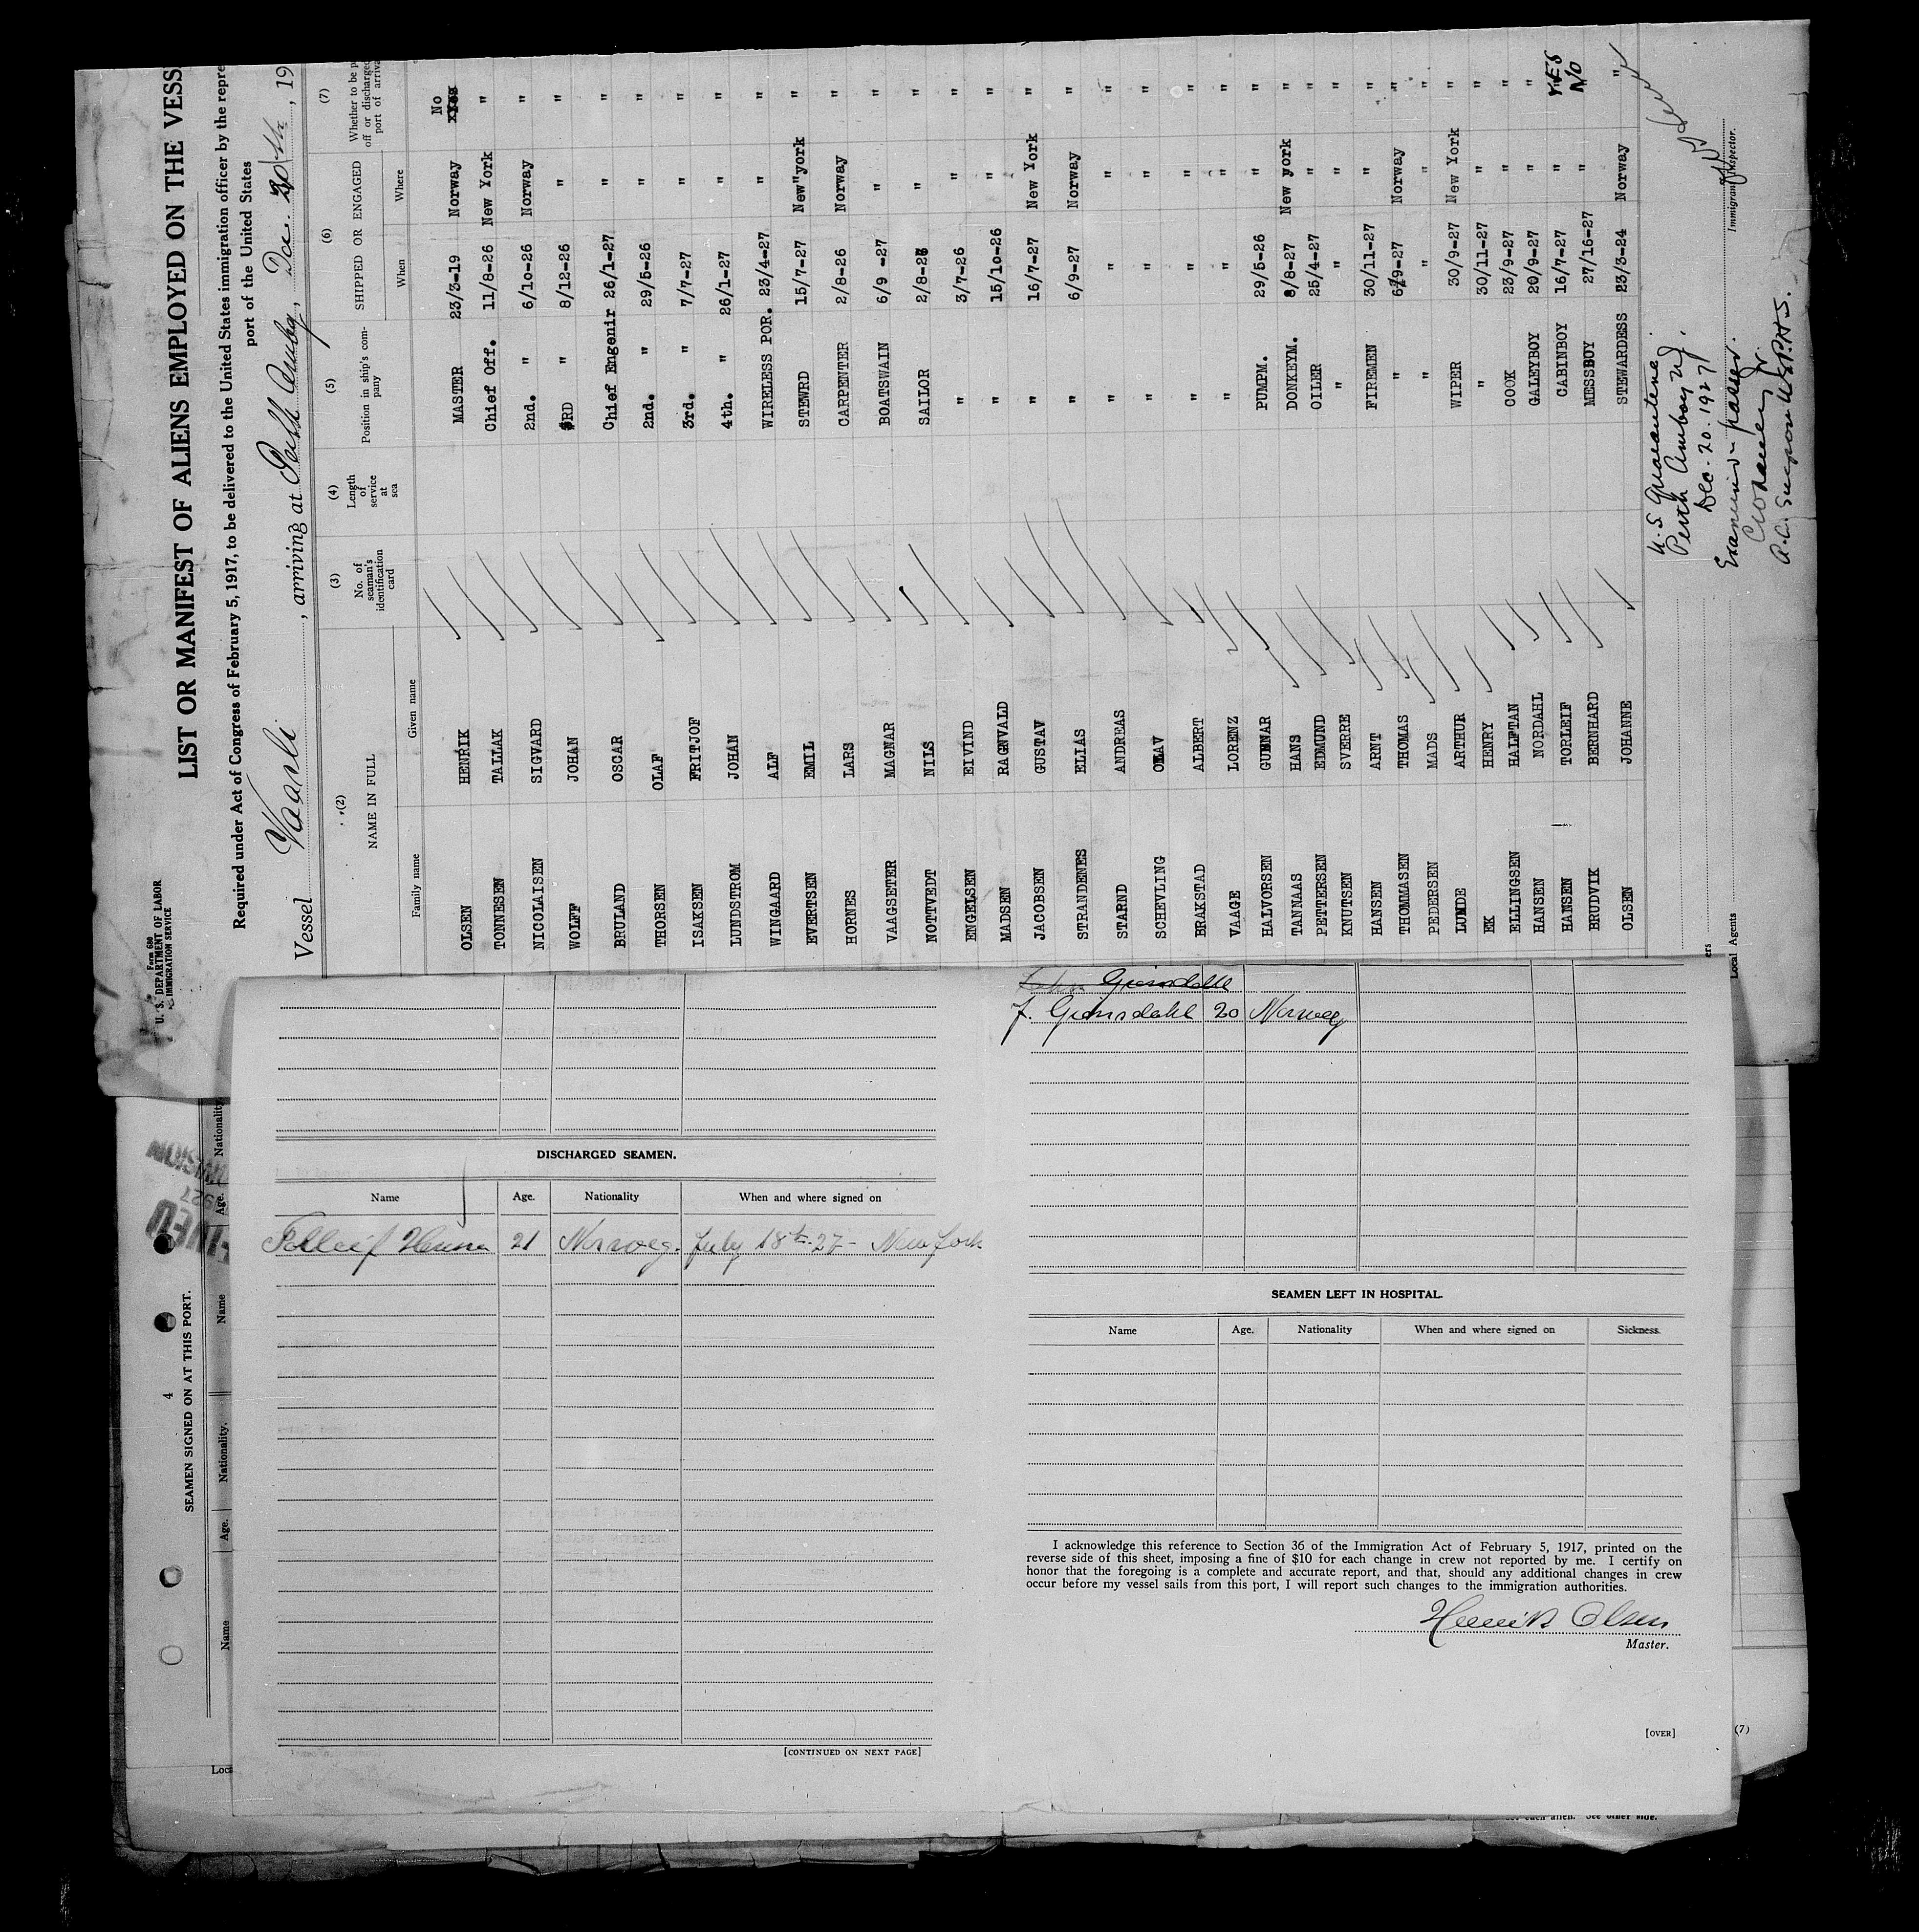 Form 680
U. S. DEPARTMENT OF LABOR
IMMIGRATION SERVICE
LIST OR MANIFEST OF ALIENS EMPLOYED ON THE VESS
Required under Act of Congress of February 5, 1917, to be delivered to the United States immigration officer by the repre
port of the United States
Vessel Vaarli, arriving at Perth Amboy, Dec. 20th, 19
(2) (3) (4) (5) (6) (7)
NAME IN FULL No. of seaman's identification card Length of service at sea Position in ship's company SHIPPED OR ENGAGED Whether to be p off or discharged port of arriva
Family name Given name When Where
OLSEN HENRIK MASTER 23/3-19 Norway No
TONNESEN TALLAK Chief Off. 11/8-26 New York "
NICOLAISEN SIGVARD 2nd. " 6/10-26 Norway "
WOLFF JOHAN 3RD " 8/12-26 " "
BRULAND OSCAR Chief Engenir 26/1-27 " "
THORSEN OLAF 2nd. " 29/5-26 " "
ISAKSEN FRITJOF 3rd. " 7/7-27 " "
LUNDSTROM JOHAN 4th. " 26/1-27 " "
WINGAARD ALF WIRELESS POR. 23/4-27 " "
EVERTSEN EMIL STEWRD 15/7-27 New"york "
HORNES LARS CARPENTER 2/8-26 Norway "
VAAGSETER MAGNAR BOATSWAIN 6/9 -27 " "
NOTTVEDT NILS SAILOR 2/8-26 " "
ENGELSEN EIVIND " 3/7-26 " "
MADSEN RAGNVALD " 15/10-26 " "
JACOBSEN GUSTAV " 16/7-27 New York "
STRANDENES ELIAS " 6/9-27 Norway "
STARND ANDREAS " " " "
SCHEVLING OLAV " " " "
BRAKSTAD ALBERT " " " "
VAAGE LORENZ " " " "
HALVORSEN GUNNAR PUMPM. 29/5-26 " "
TANNAAS HANS DONKEYM. 8/8-27 New york "
PETTERSEN EDMUND OILER 25/4-27 " "
KNUTSEN SVERRE " " "
HANSEN ARNT FIREMEN 30/11-27 " "
THOMMASEN THOMAS " 6/9-27 Norway "
PEDERSEN MADS " " " "
LUNDE ARTHUR WIPER 30/9-27 New York "
EK HENRY " 30/11-27 " "
ELLINGSEN HALFTAN COOK 23/9-27 " "
HANSEN NORDAHL GALEYBOY 20/9-27 " "
HANSEN TORLEIF CABINBOY 16/7-27 " YES
BRUDVIK BERNHARD MESSBUY 27/16-27 " NO
OLSEN JOHANNE STEWARDESS 23/3-24 Norway "
U.S Quarantine
Perth Amboy NJ.
Dec. 20. 1927
Examined - passed.
A.A. Surgeon U.S.P.H.S.
Immigrant Inspector.
ers
Local Agents
Grimsdahl
J. Grimsdahl 20 Norweg
DISCHARGED SEAMEN.
Name Age. Nationality When and where signed on
Tolleif Hansen 21 Norweg. July 18th-27- New York
[CONTINUED ON NEXT PAGE]
SEAMEN LEFT IN HOSPITAL.
Name Age. Nationality When and where signed on Sickness.
I acknowledge this reference to Section 36 of the Immigration Act of February 5, 1917, printed on the
reverse side of this sheet, imposing a fine of $10 for each change in crew not reported by me. I certify on
honor that the foregoing is a complete and accurate report, and that, should any additional changes in crew
occur before my vessel sails from this port, I will report such changes to the immigration authorities.
Henrik Olsen
Master.
[OVER]
(7)
4
SEAMEN SIGNED ON AT THIS PORT.
Name Age. Nationality. Name Age. Nationality
Loca
each alien. See other side.